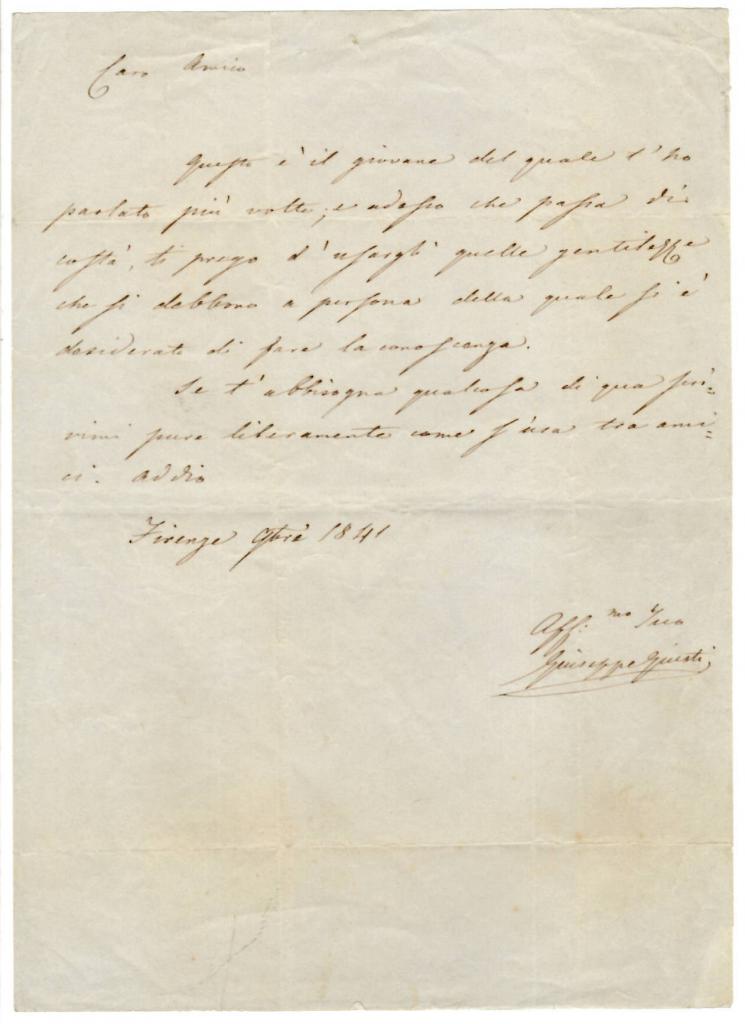 Caro Amico
Questo è il giovane del quale t'ho
parlato più volte; e adesso che passa di
costà, ti prego d'usargli quelle gentilezze
che si debbono a persona della quale si è
desiderato di fare la conoscenza.
Se t'abbisogna qualcosa di qua scri=
vimi pure liberamente come s'usa tra ami=
ci. Addio
Firenze 9bre 1841
Aff:mo Tuo
Giuseppe Giusti